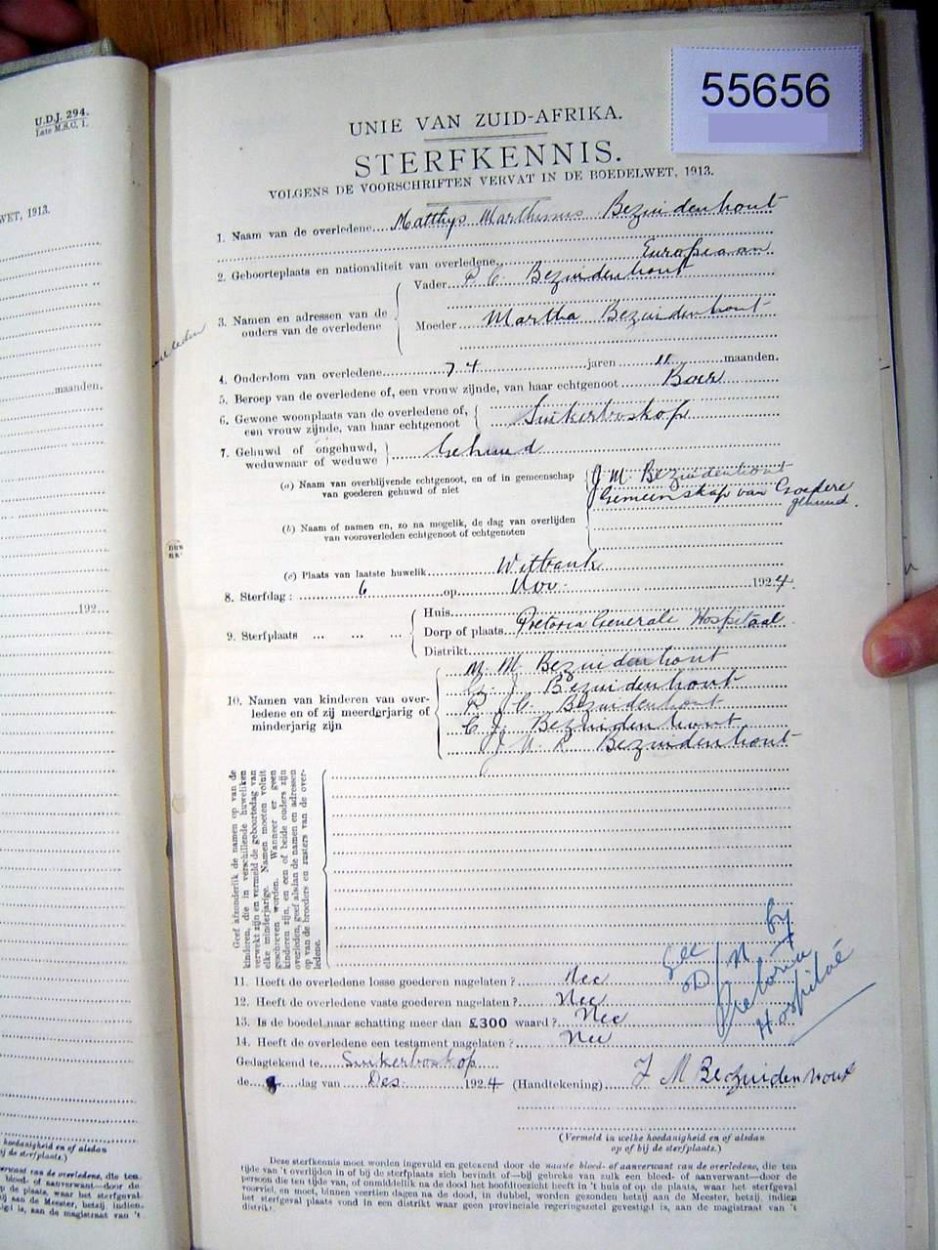 U.D.J. 294.
Late M.S.C. 1.
WET, 1913.
maanden.
192
55656
UNIE VAN ZUID-AFRIKA.
STERFKENNIS.
VOLGENS DE VOORSCHRIFTEN VERVAT IN DE BOEDELWET, 1913.
1. Naam van de overledene Matthys Marthinus Bezuidenhout
2. Geboorteplaats en nationaliteit van overledene Europeaan
3. Namen en adressen van de ouders van de overledene
Vader P. C. Bezuidenhout
Moeder Martha Bezuidenhout
4. Onderdom van overledene 74 jaren 11 maanden.
5. Beroep van de overledene of, een vrouw zijnde, van haar echtgenoot Boer
6. Gewone woonplaats van de overledene of,
een vrouw zijnde, van haar echtgenoot Suikerboskop
7. Gehuwd of ongehuwd,
weduwnaar of weduwe Gehuud
(a) Naam van overblijvende echtgenoot, en of in gemeenschap
van goederen gehuwd of niet
J. M. Bezuidenhout
Gemeenskap van Goedere
gehuud.
(b) Naam of namen en, zo na mogelik, de dag van overlijden
van vooroverleden echtgenoot of echtgenoten
(c) Plaats van laatste huwelik Witbank
8. Sterfdag : 6 op Nov. 1924
9. Sterfplaats ... ... ...
Huis
Dorp of plaats Pretoria Generale Hospitaal
Distrikt
10. Namen van kinderen van over-
ledene en of zij meerdgrjarig of
minderjarig zijn
M. M. Bezuidenhout
J. Bezuidenhout
P. J. C. Bezuidenhout
C. J. Bezuidenhout
Bezuidenhout
Geef afzonderlik de namen op van de
kinderen, die in verschillende huweliken
verwekt zijn en vermeld de geboortedag van
elke minderjarige. Namen moeten voluit
geschreven worden. Wanneer er geen
kinderen zijn, en een of beide ouders zijn
overleden, geef alsdan de namen en adressen
op van de broeders en zusters van de over-
ledene.
See D/N by
Pretoria
Hospital
11. Heeft de overledene losse goederen nagelaten ? Nee
12. Heeft de overledene vaste goederen nagelaten ? Nee
13. Is de boedel naar schatting meer dan £300 waard ? Nee
14. Heeft de overledene een testament nagelaten ? Nee
Gedagtekend te Suikerboskop
de dag van Des. 1924 (Handtekening) J M Bezuidenhout
(Vermeld in welke hoedanigheid en of alsdan
op of bij de sterfplaats.)
Deze sterfkennis moet worden ingevuld en getekend door de naaste bloed- of aanverwant van de overledene, die ten
tijde van 't overlijden in of bij de sterfplaats zich bevindt of—bij gebreke van zulk een bloed- of aanverwant—door de
persoon die ten tijde van, of onmiddellik na de dood het hoofdtoezicht heeft in 't huis of op de plaats, waar het sterfgeval
voorviel, en moet, binnen veertien dagen na de dood, in dubbel, worden gezonden hetzij aan de Meester, hetzij, indien
het sterfgeval plaats vond in een distrikt waar geen provinciale regeringszetel gevestigd is, aan de magistraat van 't
distrikt.